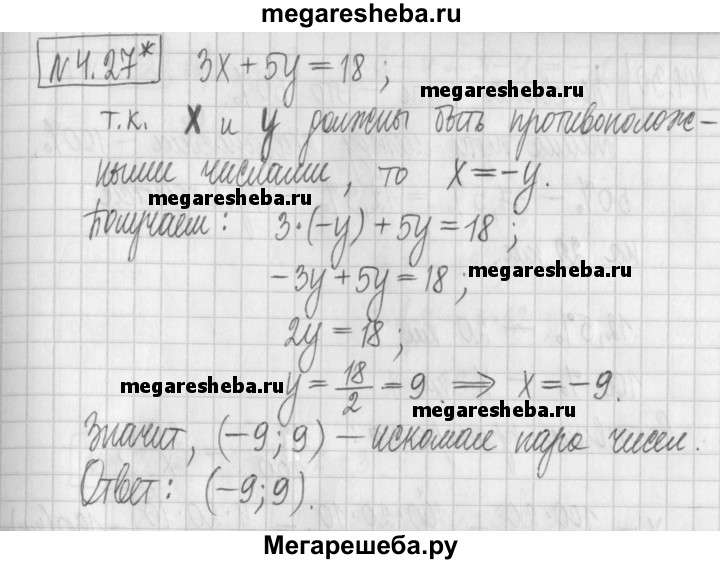 megaresheba.ru
№4.27* 3x + 5y = 18;
megaresheba.ru
т.к. x и y должны быть противополож-
ными числами, то x = -y.
megaresheba.ru
Получаем: 3·(-y) + 5y = 18;
-3y + 5y = 18;
megaresheba.ru
2y = 18;
y = 18/2 = 9. ⇒ x = -9.
megaresheba.ru
megaresheba.ru
Значит, (-9; 9) — искомая пара чисел.
Ответ: (-9; 9).
Мегарешеба.ру